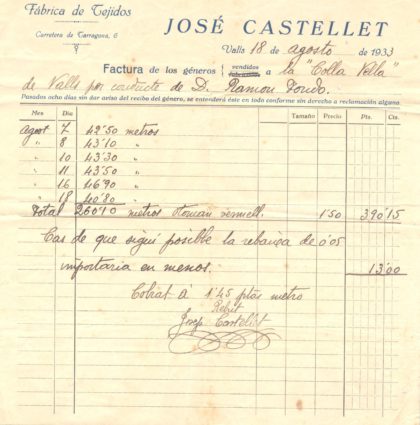 Fábrica de Tejidos
Carretera de Tarragona, 6
JOSÉ CASTELLET
Valls 18 de agosto de 1933
Factura de los géneros vendidos fabricados a la "Colla Vella"
de Valls por conducto de D. Ramon
Pasados ocho días sin dar aviso del recibo del género, se entenderá éste en todo conforme sin derecho a reclamación alguna
Mes Día Tamaño Precio Pts. Cts.
Agost 7 42'50 metros
" 8 43'10 "
" 10 43'30 "
" 11 43'50 "
" 16 46'90 "
" 18 40'80 "
Total 260'10 metros Otoman vermell. 1'50 390'15
Cas de que sigui posible la rebaixa de 0'05
importaria en menos. 13'00
Cobrat á 1'45 ptas metro
Rebut
Josep Castellet